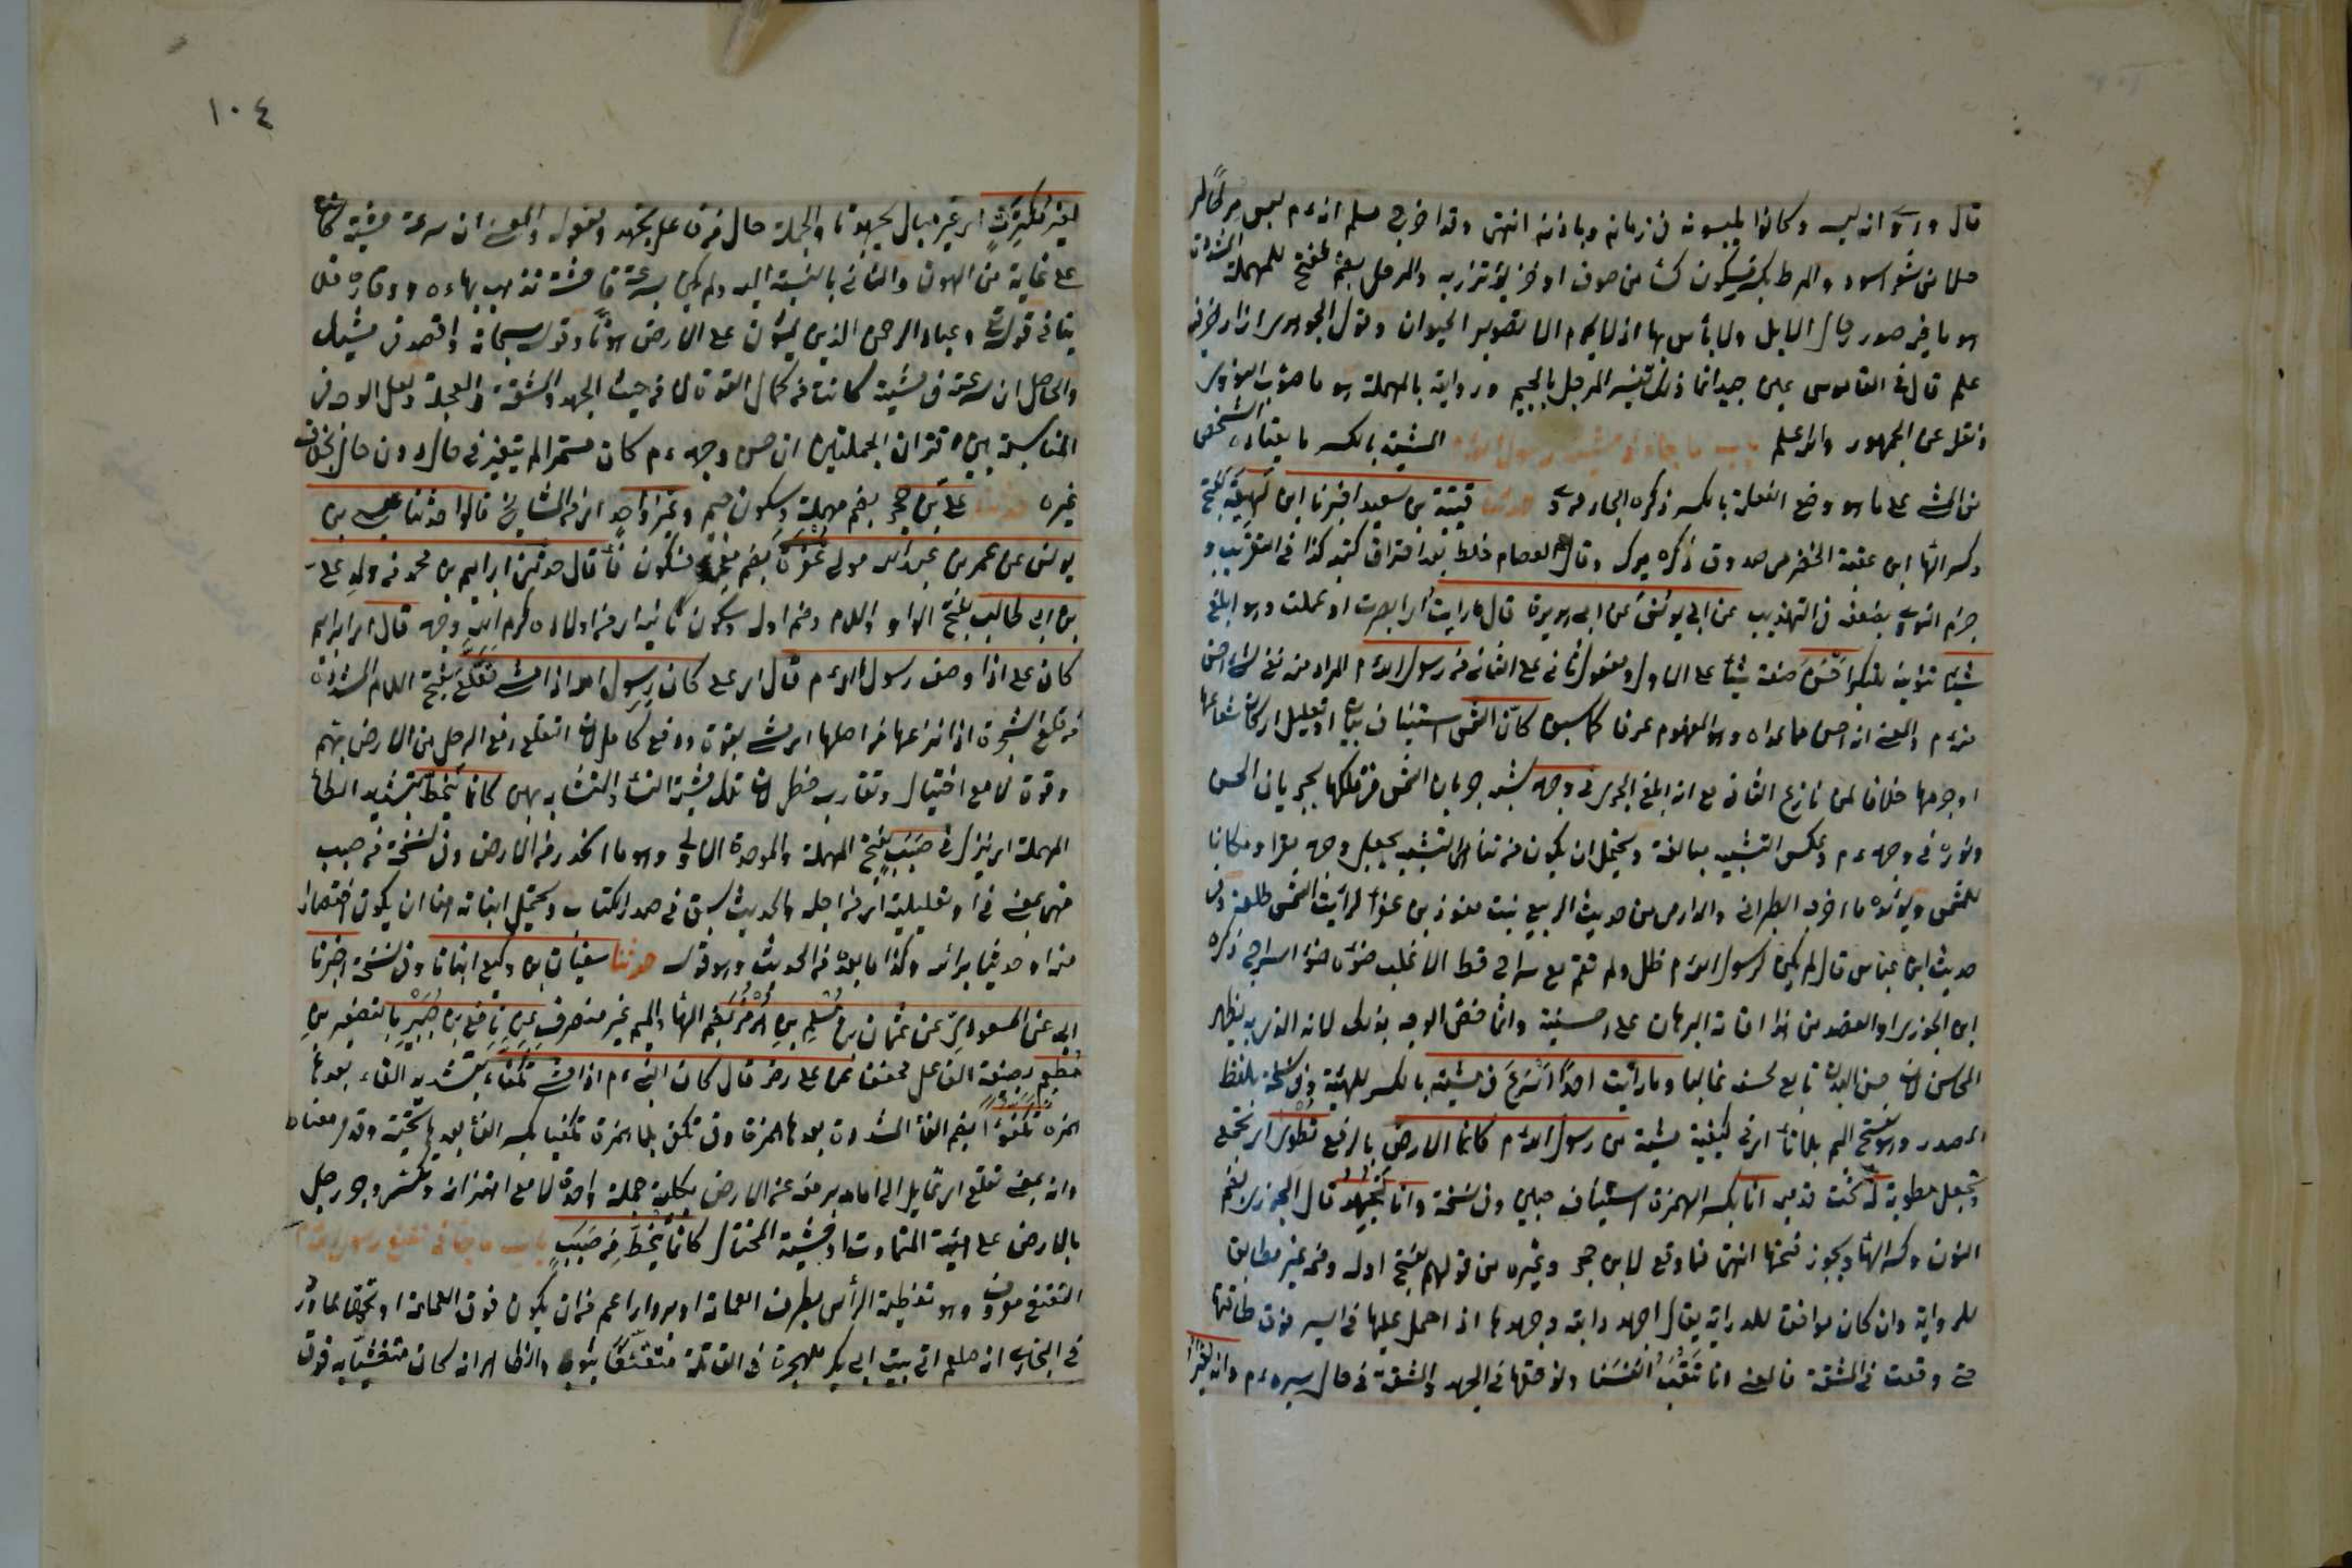 قال وروى انه لبسه وكانوا يلبسونه فى زمانه وباذنه انتهى وقد اخرج مسلم انه ءم لبس مرطا
من شعر اسود والمرط بكسر فسكون كساء من صوف او خز يؤتزر به والمرحل بضم ففتح للمهملة المشددة
هو ما فيه صور رحال الابل ولا بأس بها اذ لا يحرم الا تصوير الحيوان وقول الجوهرى ازار خز فيه
علم قال فى القاموس غير جيد انما ذلك تفسير المرجل بالجيم ورواية بالمهملة هو ما صوبه النووى
ونقل عن الجمهور والله اعلم باب ما جاء فى مشية رسول الله المشية بالكسر ما يعتاده الشخص
من المشى على ما هو وضع الفعلة بالكسر ذكره الجاربردى حدثنا قتيبة بن سعيد اخبرنا ابن لهيعة بفتح
وكسر الهاء ابن عقبة الحضرمى صدوق ذكره ميرك وقال العصام خلط بعد احتراق كتبه كذا فى التقريب و
جزم النووى بضعفه فى التهذيب عن ابى يونس عن ابى هريرة قال ما رايت اى ابصرت او علمت وهو ابلغ
شيئا تنوينه للتنكير احسن صفة شيئا على الاول ومفعول ثانى على الثانى من رسول الله ءم المراد منه نفى شئ احسن
منه ءم والمعنى انه احسن مما عداه وهو المفهوم عرفا كما سبق كان الشمس استيناف بيان او تعليل اى كان شعاعها
او جرمها خلافا لمن نازع الثانى مع انه ابلغ تجرى فى وجهه شبه جريان الشمس فى فلكها بجريان الحسن
ونوره فى وجهه ءم وعكس التشبيه مبالغة ويحتمل ان يكون من تناهى التشبيه بجعل وجهه مقرا ومكانا
للشمس ويؤيده ما اخرجه الطبرانى والدارمى من حديث الربيع بنت معوذ بن عفراء لرأيت الشمس طالعة وفى
حديث ابن عباس قال لم يكن لرسول الله ءم ظل ولم يقم مع سراج قط الا غلب ضوءه ضوء السراج ذكره
ابن الجوزى والقصد من هذا اقامة البرهان على احسنيته وانما خص الوجه بذلك لانه الذى به يظهر
المحاسن لان حسن البدن تابع لحسنه غالبا وما رأيت احدا اسرع فى مشيته بالكسر للهيئة وفى نسخة بلفظ
المصدر وهو بفتح الميم بلا تاء اى فى كيفية مشيته من رسول الله ءم كانما الارض بالرفع تطوى اى تجمع
وتجعل مطوية له تحت قدميه انا بكسر الهمزة استيناف مبين وفى نسخة وانا لنجهد قال الجوزى بضم
النون وكسر الهاء ويجوز فتحها انتهى فما وقع لابن حجر وغيره من قولهم بفتح اوله وضمه غير مطابق
للرواية وان كان موافقا للدراية يقال اجهد دابته وجهدها اذا حمل عليها فى السير فوق طاقتها
حتى وقعت فى المشقة فالمعنى انا نتعب انفسنا ونوقعها فى الجهد والمشقة فى حال سيره ءم وانه
١٠٤
لغير مكترث اى غير مبال بجهدنا والجملة حال من فاعل نجهد ومفعوله والمعنى ان سرعة مشيته كانت
على غاية من الهون والتأنى بالنسبة اليه ولم يكن بسرعة فاحشة تذهب بهاءه ووقاره فلا
ينافى قوله تعالى وعباد الرحمن الذين يمشون على الارض هونا وقوله سبحانه واقصد فى مشيك
والحاصل ان سرعته فى مشيته كانت من كمال القوة لا من حيث الجهد والمشقة والعجلة ولعل الوجه فى
المناسبة بين اقتران الجملتين ان حسن وجهه ءم كان مستمرا لم يتغير فى حال دون حال بخلاف
غيره حدثنا على بن حجر بضم مهملة وسكون جيم وغير واحد اى من المشايخ قالوا حدثنا عيسى بن
يونس عن عمر بن عبدالله مولى غفرة بضم معجمة فسكون فاء قال حدثنى ابراهيم بن محمد من ولد على
بن ابى طالب بفتح الواو واللام وضم اوله وسكون ثانيه اى من اولاده كرم الله وجهه قال اى ابراهيم
كان على اذا وصف رسول الله ءم قال اى على كان رسول الله اذا مشى تقلع بفتح اللام المشددة
من قلع الشجرة اذا نزعها من اصلها اى مشى بقوة ورفع كامل لان التقلع رفع الرجل من الارض بهمة
وقوة لا مع اختيال وتقارب خطى لان تلك مشية النساء والتشابه بهن كانما ينحط بتشديد الطاء
المهملة اى ينزل فى صبب بفتح المهملة والموحدة الاولى وهو ما انحدر من الارض وفى نسخة من صبب
فهى بمعنى فى او تعليلية اى من اجله والحديث سبق فى صدر الكتاب ويحتمل اثباته هنا ان يكون اختصارا
منه او حديثا برأسه وكذا ما بعده من الحديث وهو قوله حدثنا سفيان بن وكيع انبانا وفى نسخة اخبرنا
ابى عن المسعودى عن عثمان بن مسلم بن هرمز بضم الهاء والميم غير منصرف عن نافع بن جبير بالتصغير بن
مطعم بصيغة الفاعل مخففا عن على رضه قال كان النبى ءم اذا مشى تكفأ بتشديد الفاء بعدها
همزة تكفؤا بضم الفاء المشددة بعدها همزة وفى تكفى بلا همزة تكفيا بكسر الفاء بعدها تحتية وقد مر معناه
وانه بمعنى تقلع اى تمايل الى امامه ليرفعه عن الارض بكلية جملة واحدة لا مع اهتزاز وتكسر وجر رجل
بالارض على هيئة المتماوت او مشية المختال كانما ينحط من صبب باب ما جاء فى تقنع رسول الله
التقنع معروف وهو تغطية الرأس بطرف العمامة او برداء اعم من ان يكون فوق العمامة او تحتها لما ورد
فى البخارى انه صلعم اتى بيت ابى بكر للهجرة فى القائلة متقنعا بثوبه والظاهر انه كان متغشيا به فوق